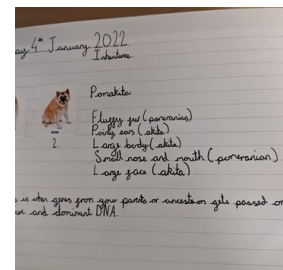 ay 4th January 2022
Inheritance
Pomakita
Fluffy fur (pomeranian)
Pointy ears (akita)
2. Large body (akita)
Small nose and mouth (pomeranian)
Large face (akita)
is when genes from your parents or ancestors gets passed on
and dominant DNA.